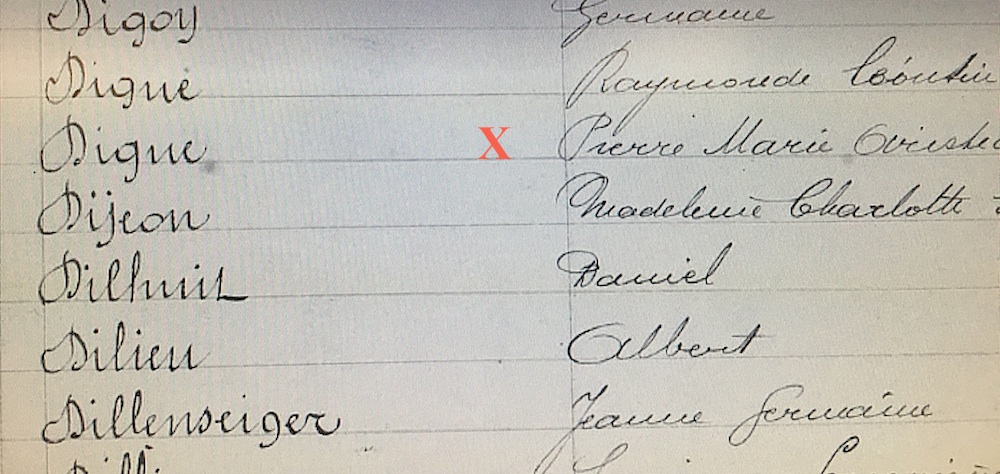 Digoy Germaine
Digue Raymonde
Digue X Pierre Marie
Dijeon Madeleine Charlotte
Dilhuit Daniel
Dilieu Albert
Dillenseiger Jeanne Germaine